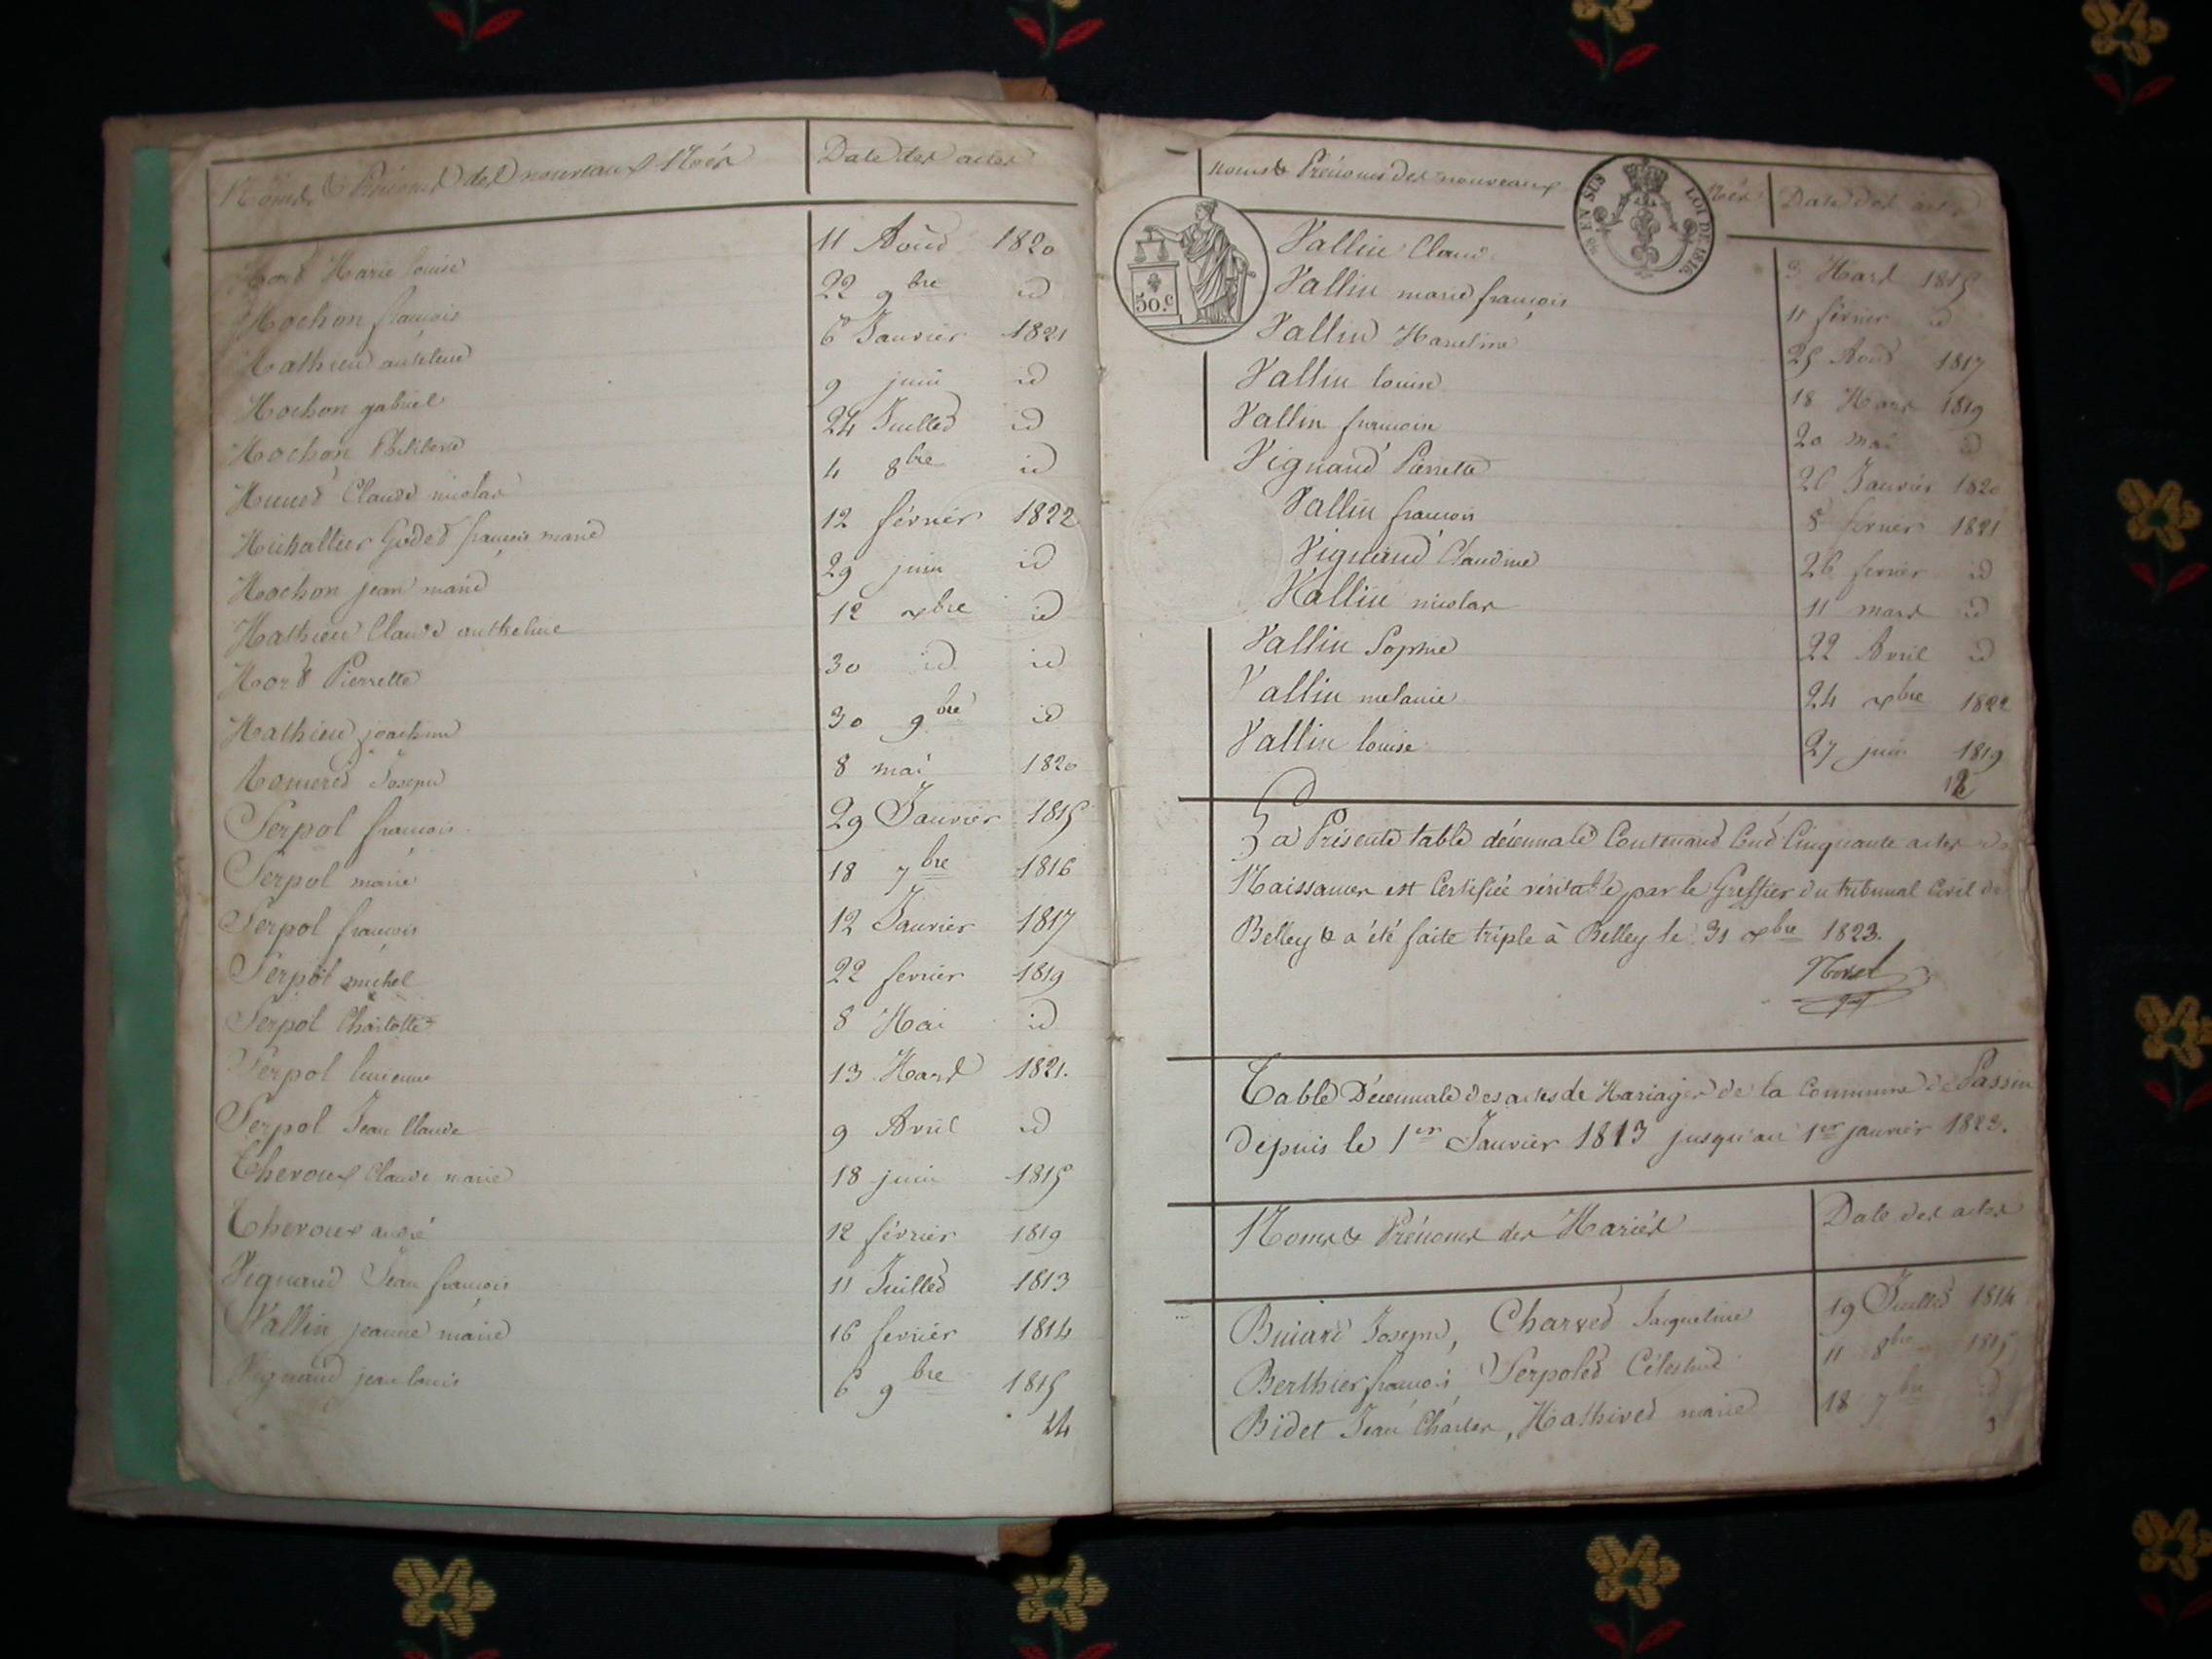 Noms & Prénoms des nouveaux Nés | Date des actes
Mord Marie louise | 11 Aoud 1820
Mochon françois | 22 9bre id
Mathieu antelme | 6 Janvier 1821
Mochon gabriel | 9 juin id
Mochon Philiberd | 24 Juilled id
Claude nicolas | 4 8bre id
Michallier Goded françois marie | 12 février 1822
Mochon jean marie | 29 juin id
Mathieu Claude anthelme | 12 xbre id
Mord Pierrette | 30 id id
Mathieu joachim | 30 9bre id
Joseph | 8 mai 1820
Serpol françois | 29 Janvier 1815
Serpol marie | 18 7bre 1816
Serpol françois | 12 Janvier 1817
Serpol michel | 22 fevrier 1819
Serpol Charlotte | 8 Mai id
Serpol lucienne | 13 Mars 1821.
Serpol Jean Claude | 9 Avril id
Cheroux Claude marie | 18 juin 1815
Cheroux andré | 12 février 1819
Vignaud Jean françois | 11 Juilled 1813
Vallin jeanne marie | 16 fevrier 1814
Vignaud jean louis | 6 9bre 1815
24
Noms & Prénoms des nouveaux Nés | Date des actes
EN SUS
LOI DE 1816.
50.c
Vallin Claude | 3 Mars 1815
Vallin marie françois | 11 février id
Vallin Marceline | 25 Aoud 1817
Vallin louise | 18 Mars 1819
Vallin françois | 20 mai id
Vignaud Pierrette | 26 Janvier 1820
Vallin françois | 5 fevrier 1821
Vignaud Claudine | 26 fevrier id
Vallin nicolas | 11 mars id
Vallin Sophie | 22 Avril id
Vallin melanie | 24 xbre 1822
Vallin louise | 27 juin 1819
12
La Présente table décennale Contenand Cend Cinquante actes de
Naissances est Certifiée véritable par le Greffier du tribunal Civil de
Belley & a été faite triple à Belley le 31 xbre 1823.
Table Décennale des actes de Mariages de la Commune de Passin
depuis le 1er Janvier 1813 jusqu'au 1er janvier 1823.
Noms & Prénoms des Mariés | Date des actes
Buiard Joseph, Charved Jacqueline | 19 Juilled 1814
Berthier françois, Serpoled Célestine | 11 8bre 1815
Bidet Jean Charles, Mathived marie | 18 7bre id
3